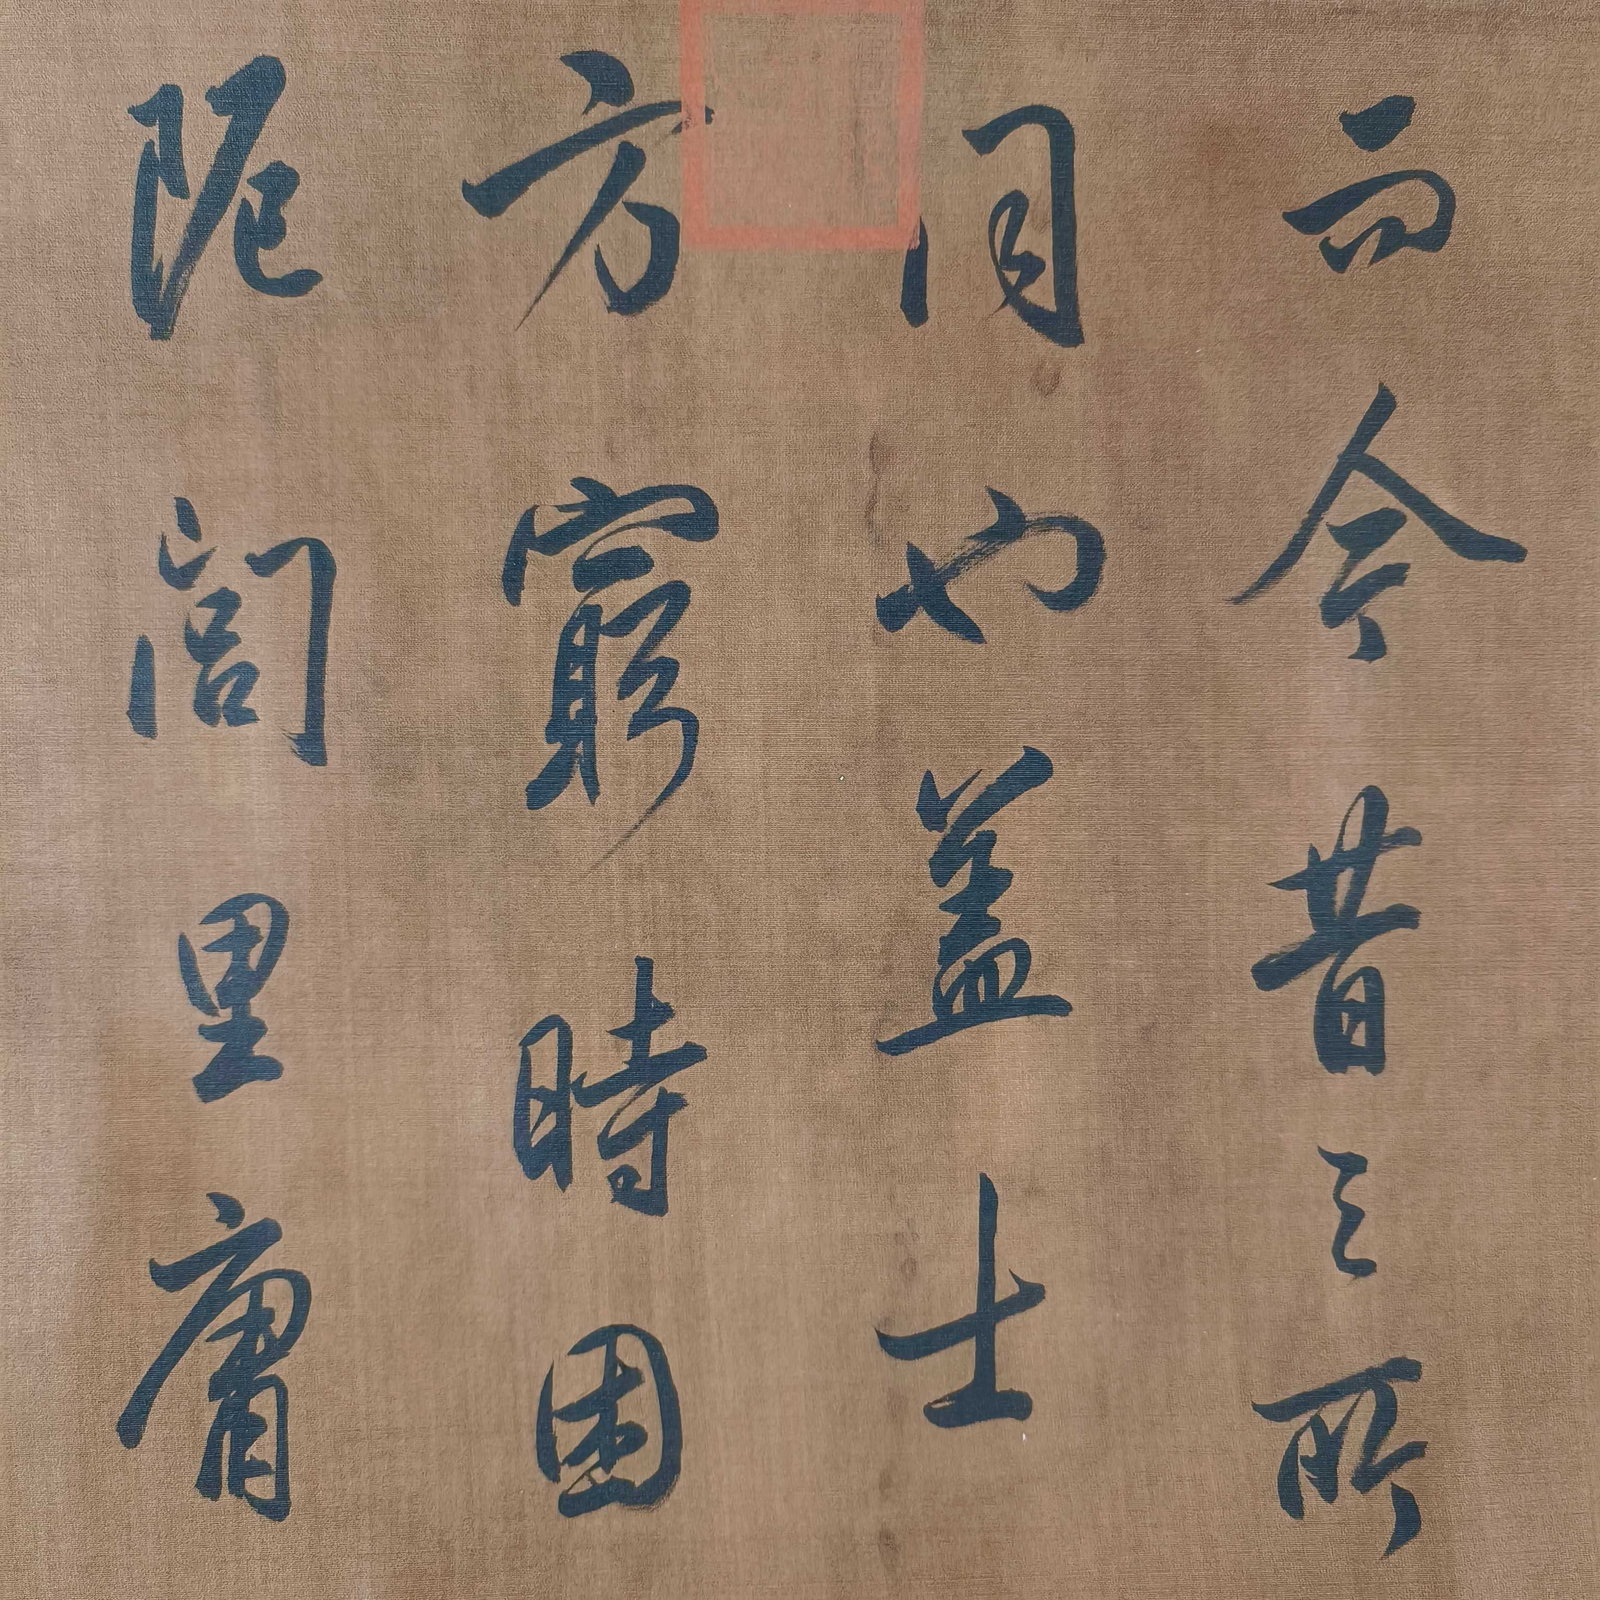 而今昔之所
同也盖士
方窮時困
阨閭里庸